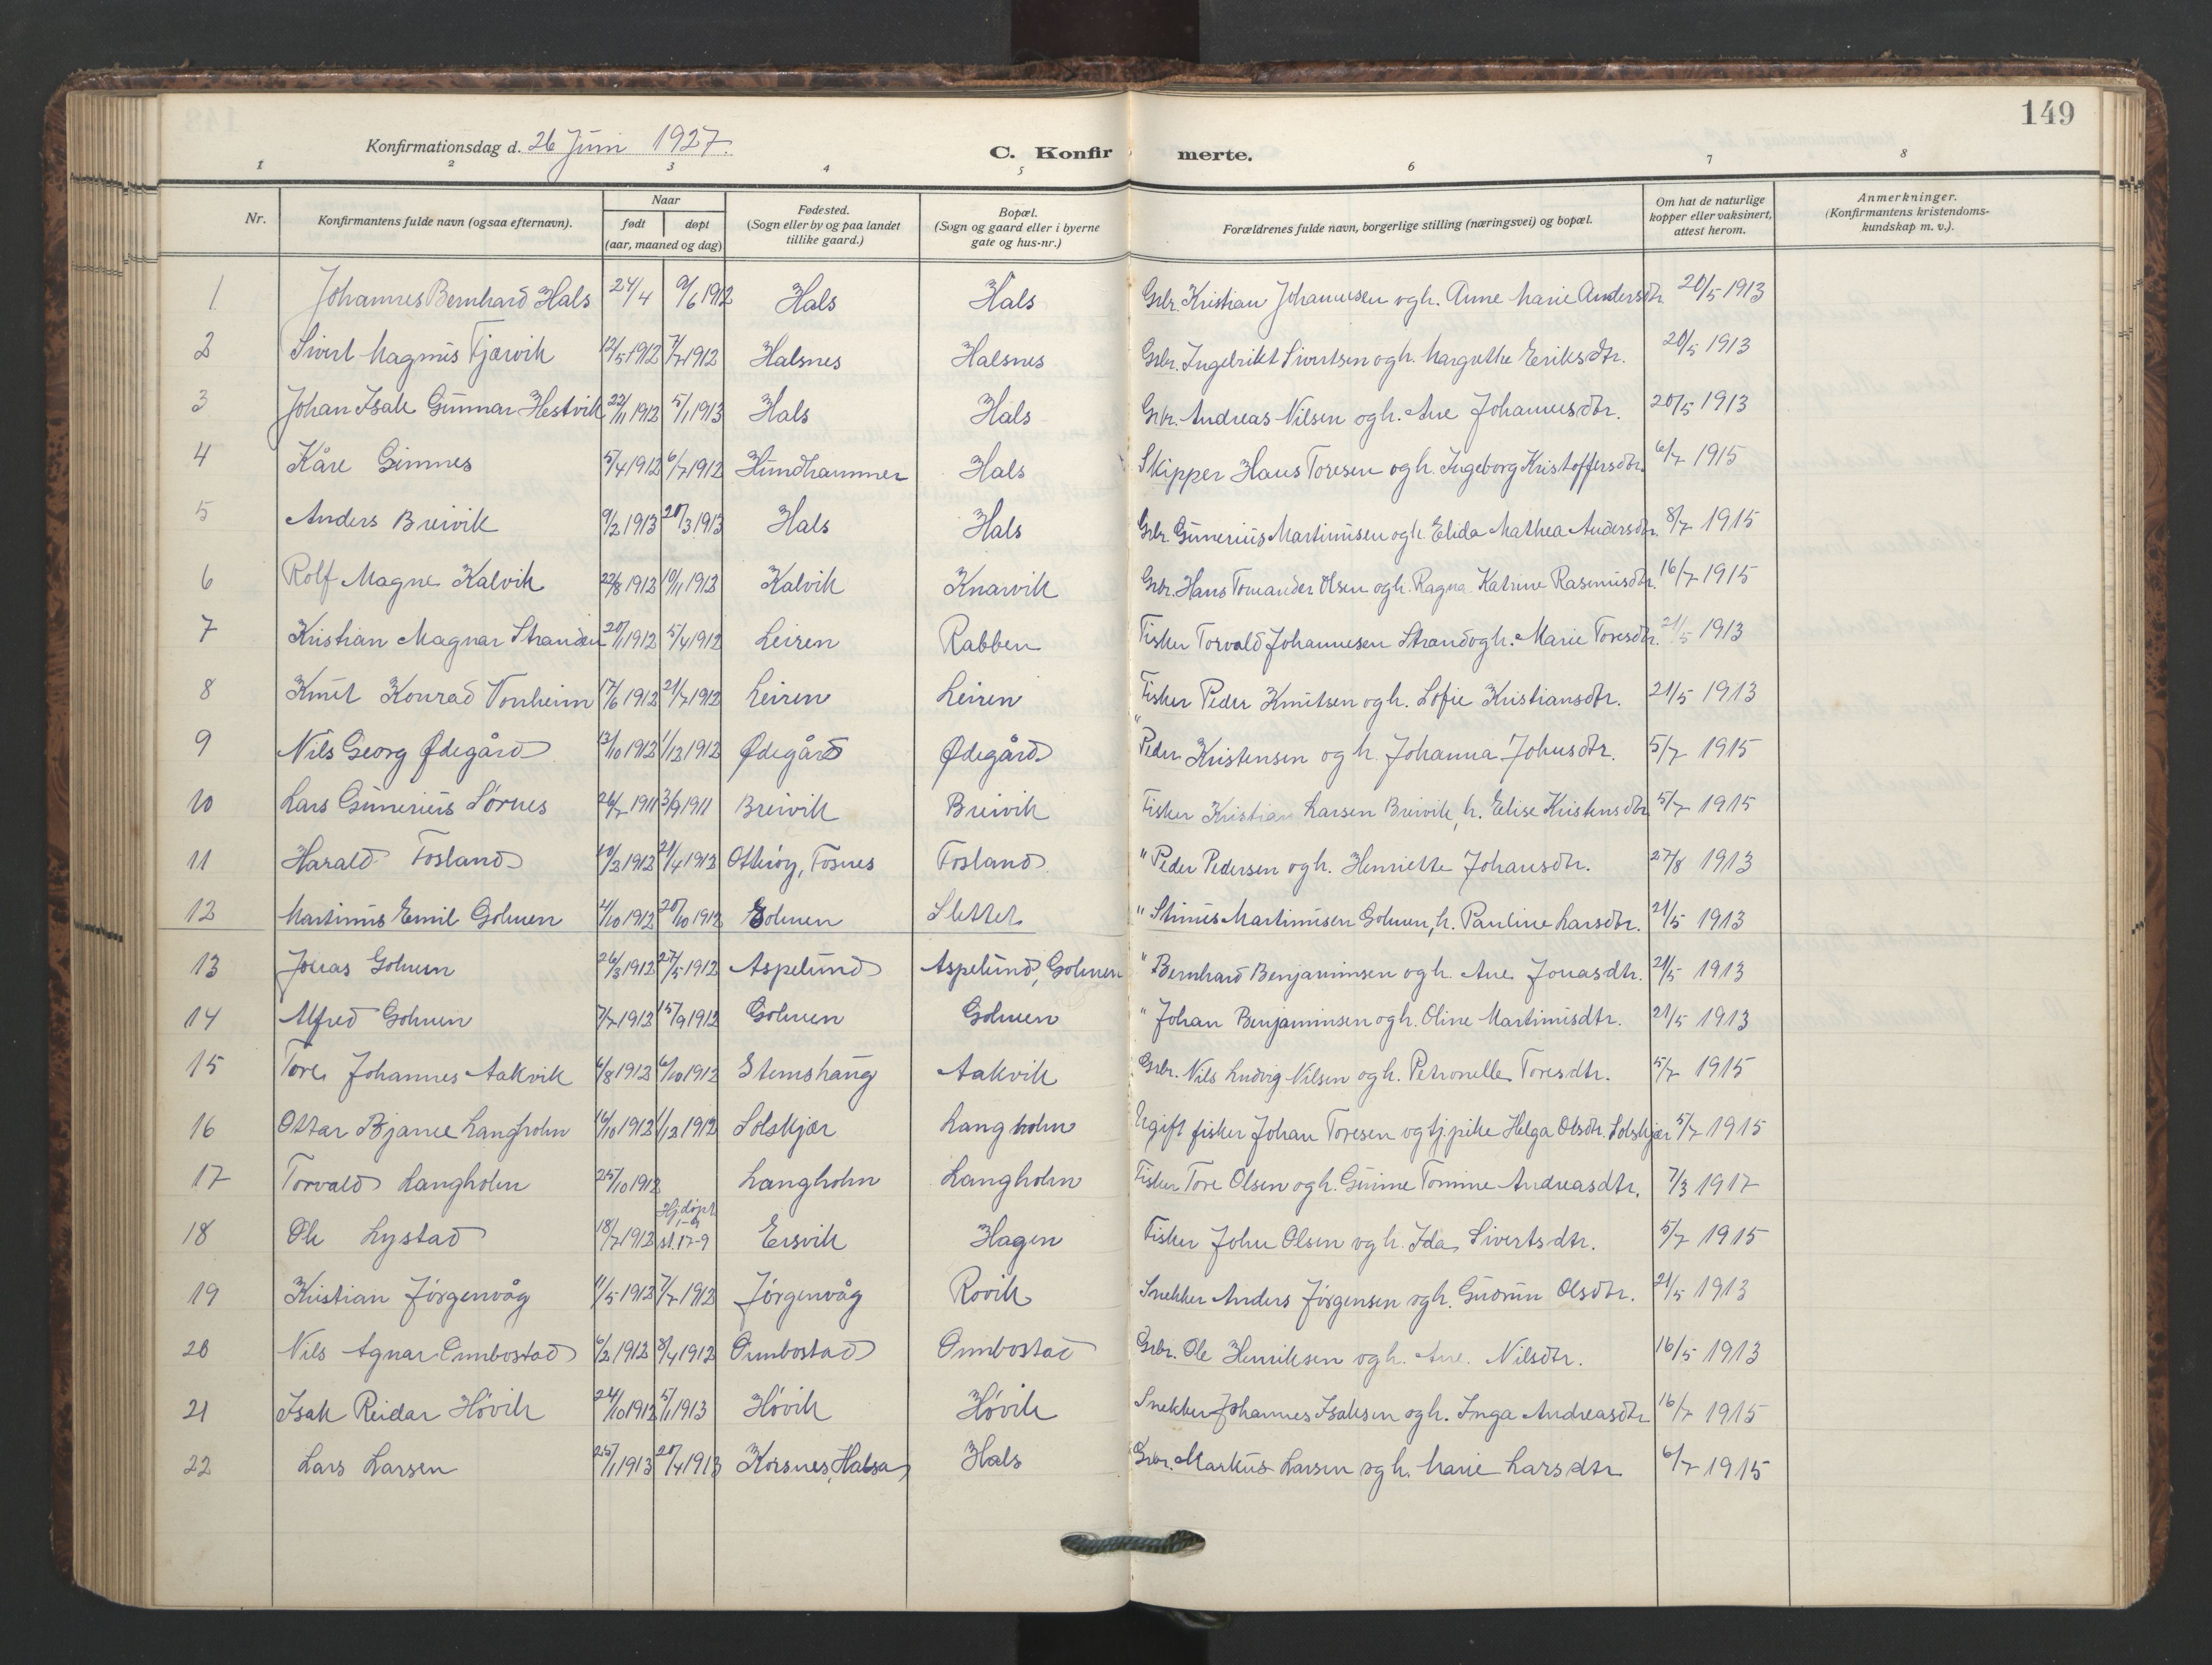 149
Konfirmationsdag d. 26 Juni 1927.
C. Konfirmerte.
1 2 3 4 5 6 7 8
Nr. Konfirmantens fulde navn (ogsaa efternavn). Naar født døpt (aar, maaned og dag) Fødested. (Sogn eller by og paa landet tillike gaard.) Bopæl. (Sogn og gaard eller i byerne gate og hus-nr.) Forældrenes fulde navn, borgerlige stilling (næringsvei) og bopæl. Om hat de naturlige kopper eller vaksinert, attest herom. Anmerkninger. (Konfirmantens kristendoms-kundskap m. v.).
1 Johannes Bernhard Hals 24/4 9/6 1912 Hals Hals Grbr. Kristian Johannesen og h. Anne Marie Andersdtr 20/5 1913
2 Sivert Magnus Fjærvik 12/5 1912 7/7 1912 Halsnes Halsnes Grbr. Ingebrikt Sivertsen og h. Margrethe Eriksdtr. 20/5 1913
3 Johan Isak Gunnar Hestvik 22/11 1912 5/1 1913 Hals Hals Grbr. Andreas Nilsen og h. Ane Johannesdtr. 20/5 1913
4 Kåre Gimnes 5/4 1912 6/7 1912 Hundhammer Hals Skipper Hans Toresen og h. Ingeborg Kristoffersdtr. 6/7 1915
5 Anders Breivik 9/2 1913 20/3 1913 Hals Hals Grbr. Gunerius Martinusen og h. Elida Mathea Andersdtr. 8/7 1915
6 Rolf Magne Kalvik 22/8 1912 10/11 1912 Kalvik Knarvik Grbr. Hans Tomander Olsen og h. Ragna Katrine Rasmusdtr. 16/7 1915
7 Kristian Magnar Stranden 20/1 1912 5/4 1912 Leiren Rabben Fisker Torvald Johannesen Strand og h. Marie Toresdtr. 21/5 1913
8 Knut Konrad Vonheim 17/6 1912 21/7 1912 Leiren Leiren Fisker Peder Knutsen og h. Sofie Kristiansdtr. 21/5 1913
9 Nils Georg Ødegård 13/10 1912 1/12 1912 Ødegård Ødegård " Peder Kristensen og h. Johanna Johnsdtr. 5/7 1915
10 Lars Gunerius Sørnes 26/7 1911 3/9 1911 Breivik Breivik Fisker Kristian Larsen Breivik, h. Elise Kristensdtr 5/7 1915
11 Harald Fosland 10/2 1912 21/4 1912 Otterøy, Fosnes Fosland " Peder Pedersen og h. Henriette Johansdtr. 27/8 1913
12 Martinus Emil Golmen 4/10 1912 20/10 1912 Golmen Slettet. " Stinus Martinusen Golmen, h. Pauline Larsdtr. 21/5 1913
13 Jonas Golmen 26/3 1912 27/5 1912 Aspelund Aspelund, Golmen " Bernhard Benjaminsen og h. Ane Jonasdtr. 21/5 1913
14 Alfred Golmen 7/7 1912 15/9 1912 Golmen Golmen " Johan Benjaminsen og h. Oline Martinusdtr. 21/5 1913
15 Tore Johannes Aakvik 6/8 1912 6/10 1912 Stemshaug Aakvik Grbr. Nils Ludvig Nilsen og h. Petronelle Toresdtr. 5/7 1915
16 Ottar Bjarne Langholm 16/10 1912 1/12 1912 Solskjær Langholm Ugift fisker Johan Toresen og tj.pike Helga Olsdtr. Solskjær 5/7 1915
17 Torvald Langholm 25/10 1912 Langholm Langholm Fisker Tore Olsen og h. Gunne Tomine Andreasdtr. 7/3 1917
18 Ole Lystad 18/7 1912 Hj.døpt 1-9 st. 17-9 Ersvik Hagen Fisker John Olsen og h. Ida Sivertsdtr. 5/7 1915
19 Kristian Jørgenvåg 11/5 1912 7/7 1912 Jørgenvåg Rovik Snekker Anders Jørgensen og h. Gudrun Olsdtr. 21/5 1913
20 Nils Agnar Ombostad 6/2 1912 8/4 1912 Ombostad Ombostad Grbr. Ole Henriksen og h. Ane Nilsdtr. 16/5 1913
21 Isak Reidar Høvik 24/10 1912 5/1 1913 Høvik Høvik Snekker Johannes Isaksen og h. Inga Andreasdtr 16/7 1915
22 Lars Larsen 25/1 1913 20/4 1913 Korsnes, Halsa Hals Grbr. Markus Larsen og h. Marie Larsdtr 6/7 1915